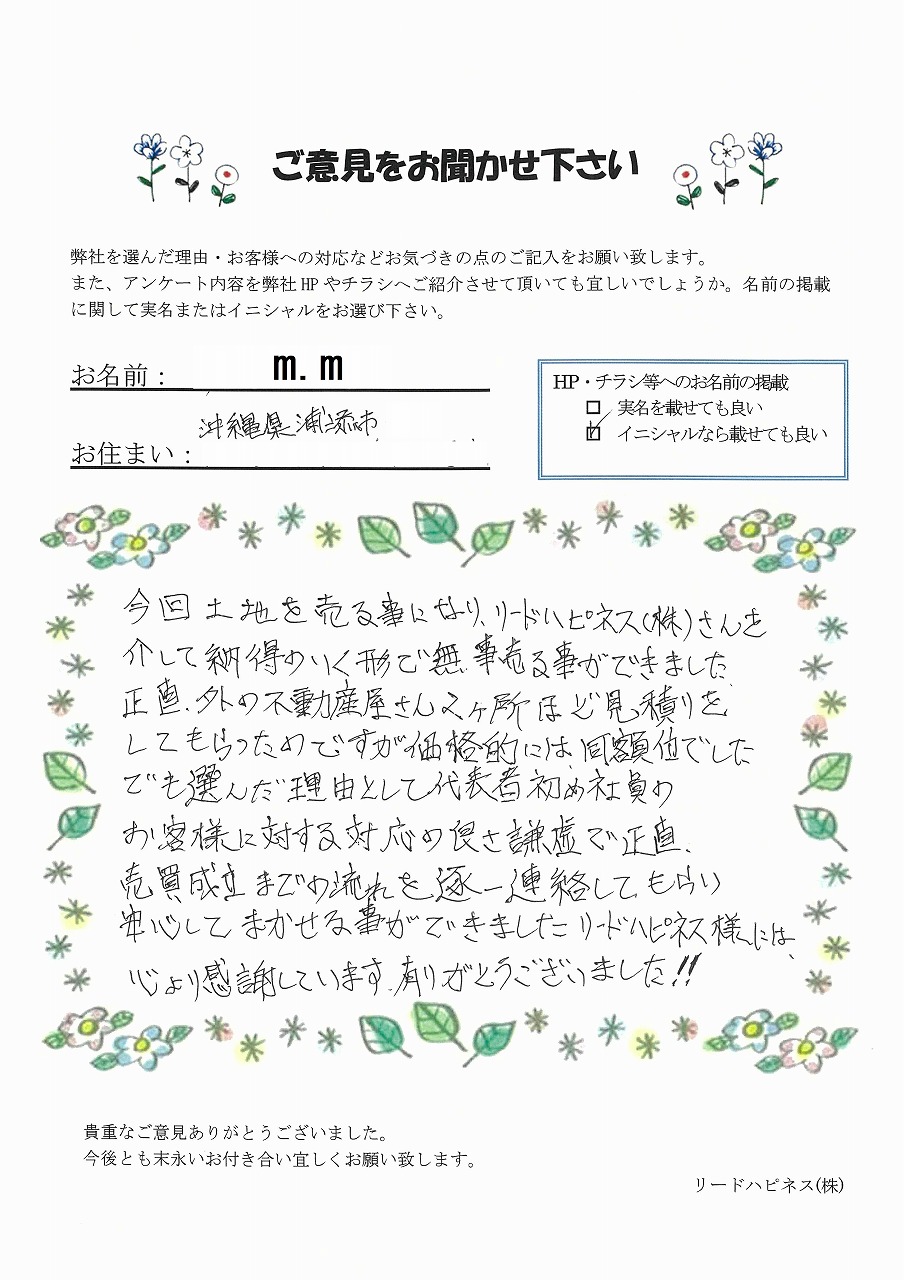 ご意見をお聞かせ下さい
弊社を選んだ理由・お客様への対応などお気づきの点のご記入をお願い致します。
また、アンケート内容を弊社HPやチラシへご紹介させて頂いても宜しいでしょうか。名前の掲載
に関して実名またはイニシャルをお選び下さい。
お名前： m.m
お住まい： 沖縄県浦添市
HP・チラシ等へのお名前の掲載
□ 実名を載せても良い
☑ イニシャルなら載せても良い
今回土地を売る事になり、リードハピネス(株)さんを
介して納得のいく形で無事売る事ができました
正直、外の不動産屋さん2ヶ所ほど見積りを
してもらったのですが価格的には、同額位でした
でも選んだ理由として代表者初め社員の
お客様に対する対応の良さ謙虚で正直、
売買成立までの流れを逐一連絡してもらい
安心してまかせる事ができましたリードハピネス様には、
心より感謝しています。有りがとうございました!!
貴重なご意見ありがとうございました。
今後とも末永いお付き合い宜しくお願い致します。
リードハピネス(株)